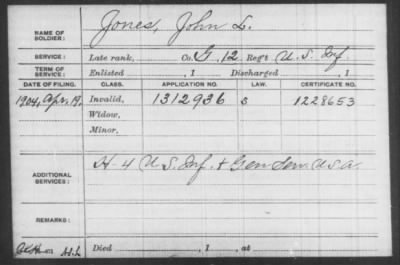 NAME OF SOLDIER: Jones, John L.
SERVICE: Late rank, Co. G, 12 Reg't U. S. Inf
TERM OF SERVICE: Enlisted , 1 Discharged , 1
DATE OF FILING. CLASS. APPLICATION NO. LAW. CERTIFICATE NO.
1904, Apr. 19. Invalid, 1312936 S 1228653
Widow,
Minor,
ADDITIONAL SERVICES: H-4 U. S. Inf. + Gen Ser. U. S. A.
REMARKS:
Died , 1 , at